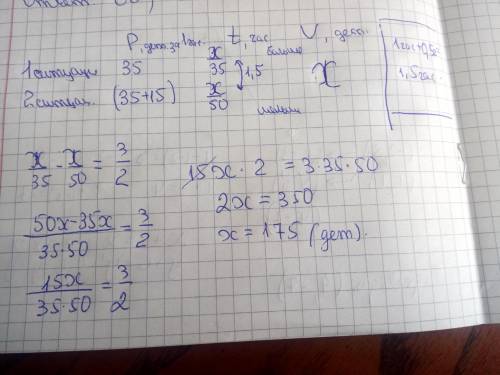 P, дет. за 1 час. t, час V, дет.
1 ситуация 35 x/35 больше
1,5 x
2 ситуац. (35+15) x/50 меньше
1,5 час.
x/35 - x/50 = 3/2
(50x-35x)/(35·50) = 3/2
15x/(35·50) = 3/2
15x·2 = 3·35·50
2x = 350
x = 175 (дет).